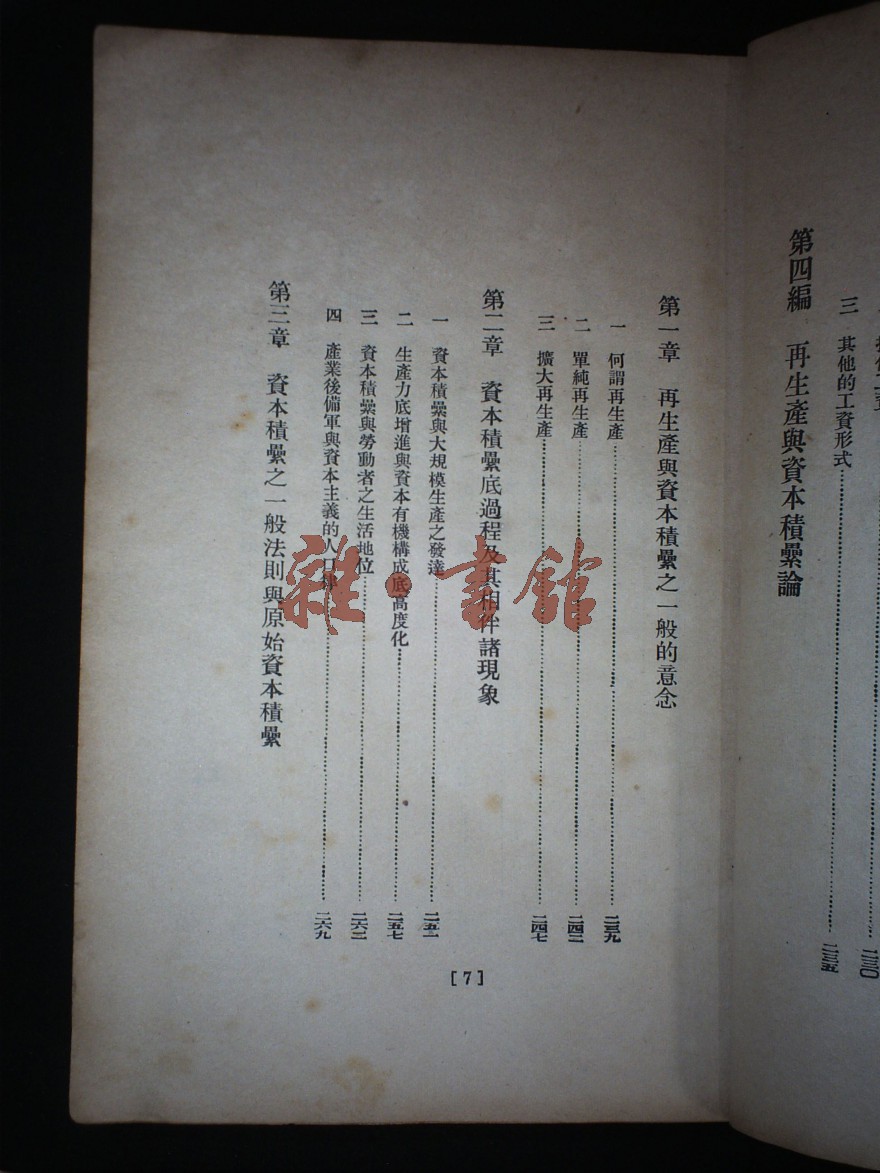 三　其他的工資形式……二三五
第四編　再生產與資本積纍論
第一章　再生產與資本積纍之一般的意念
一　何謂再生產……二三九
二　單純再生產……二四二
三　擴大再生產……二四七
第二章　資本積纍底過程及其相伴諸現象
一　資本積纍與大規模生產之發達……二五一
二　生產力底增進與資本有機構成底高度化……二五七
三　資本積纍與勞動者之生活地位……二六二
四　產業後備軍與資本主義的人口律……二六九
第三章　資本積纍之一般法則與原始資本積纍
[7]
雜·書館